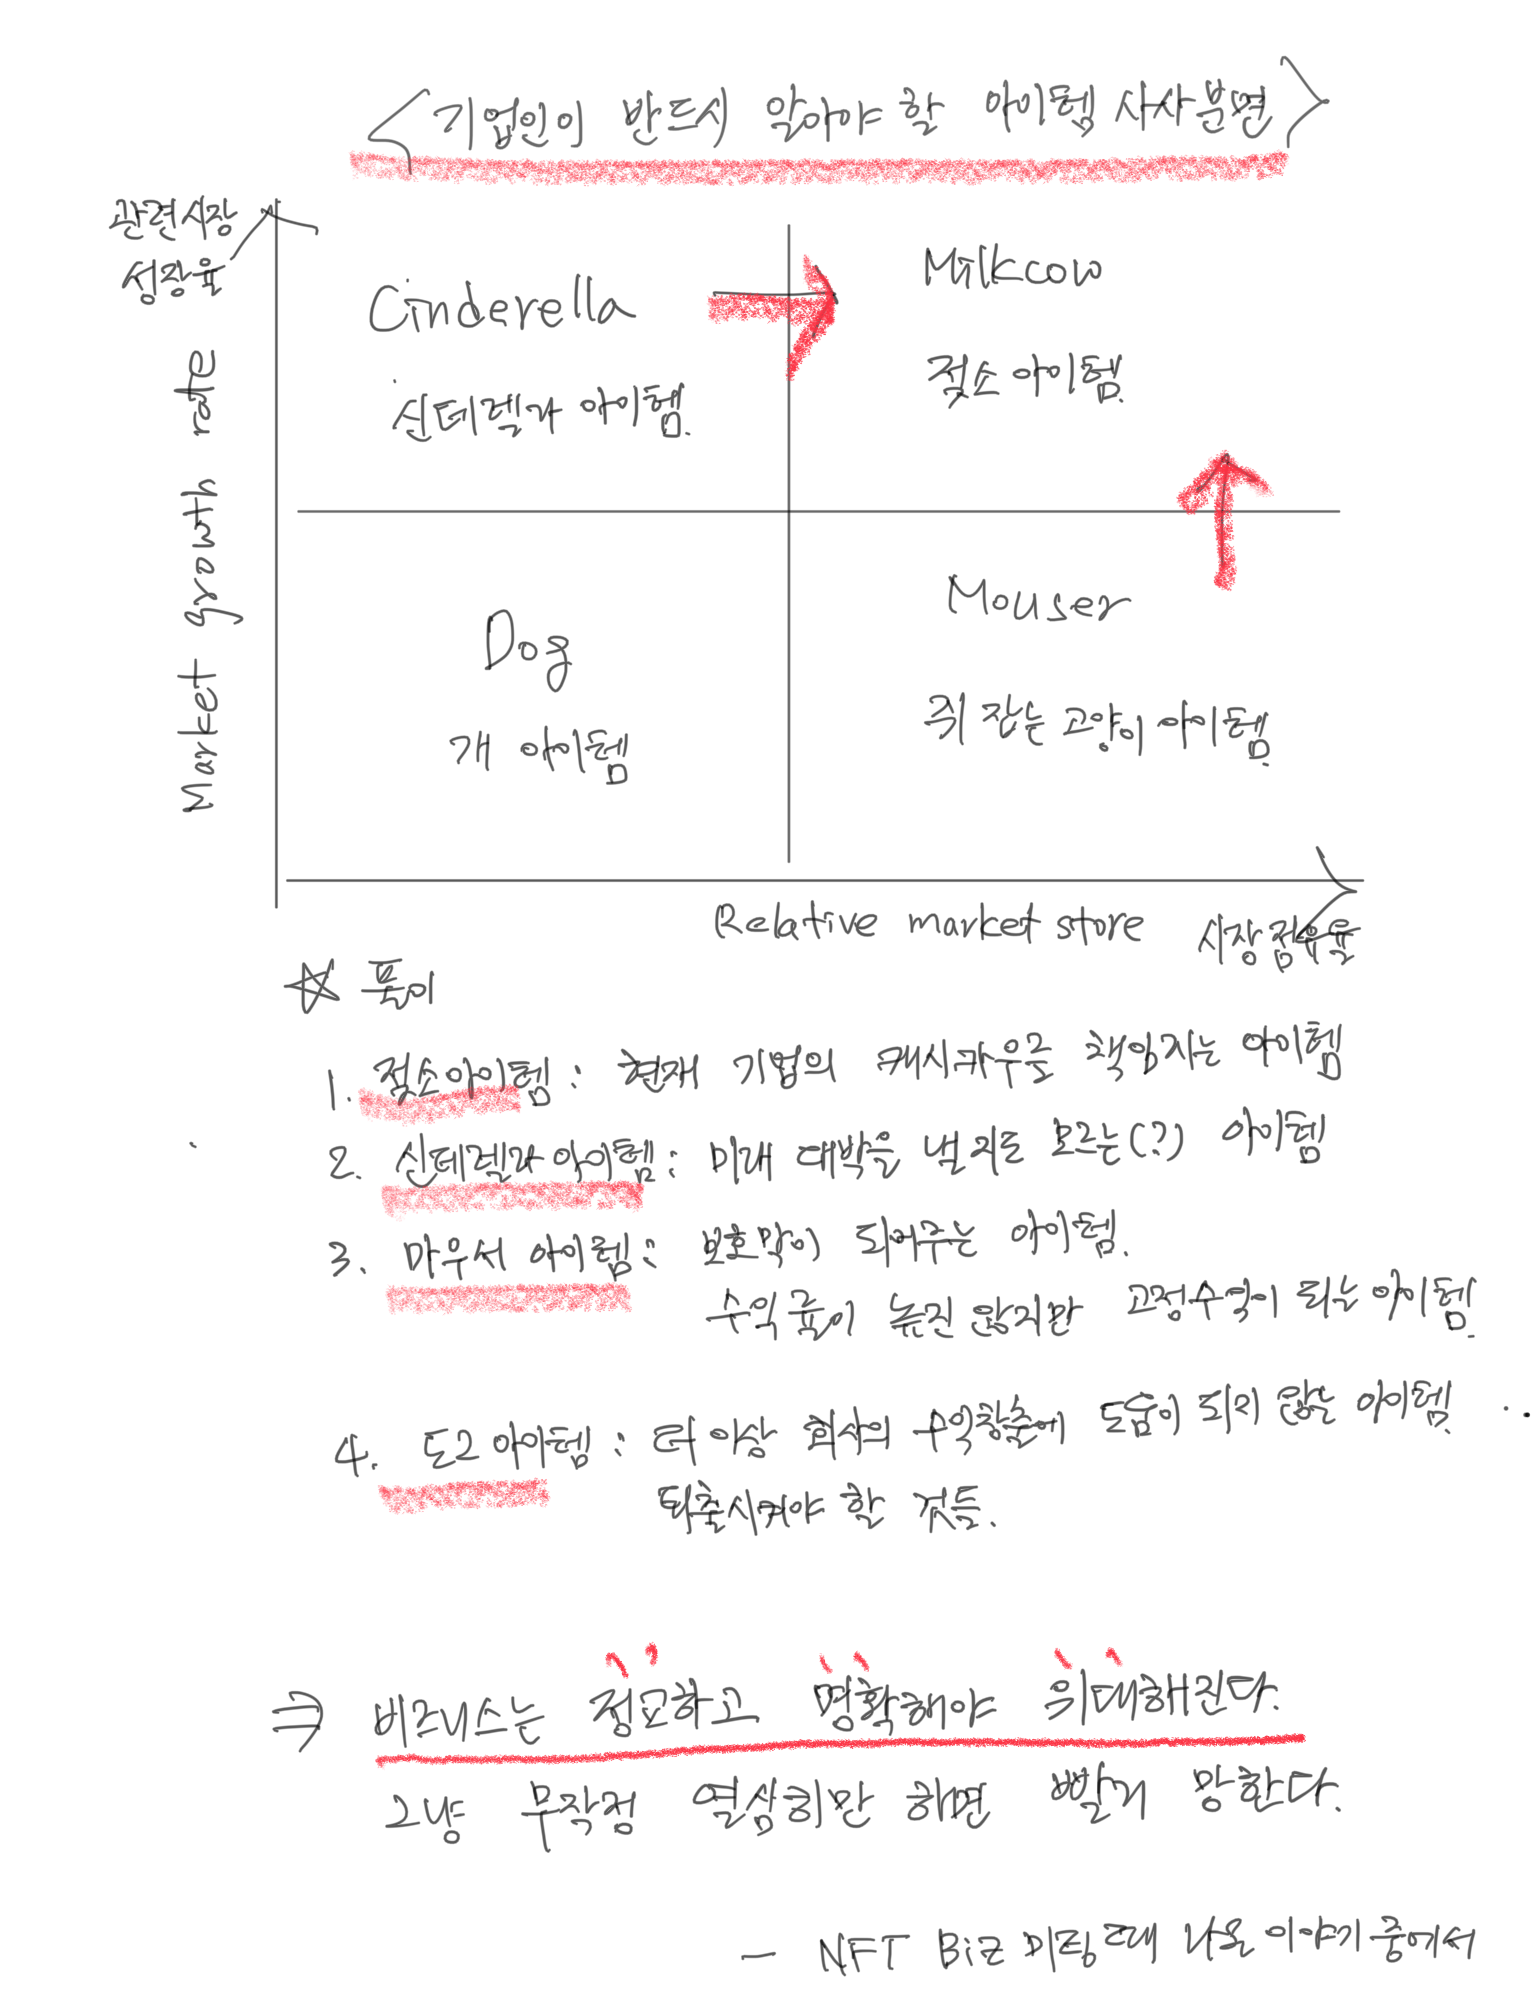 <기업인이 반드시 알아야 할 아이템 사사분면>
관련시장
성장율
Market growth rate
Cinderella
신데렐라 아이템.
Milkcow
젖소 아이템.
Dog
개 아이템
Mouser
쥐 잡는 고양이 아이템.
Relative market store 시장점유율
☆ 풀이
1. 젖소아이템 : 현재 기업의 캐시카우를 책임지는 아이템
2. 신데렐라 아이템 : 미래 대박을 낼 지도 모르는(?) 아이템
3. 마우서 아이템 : 보호막이 되어주는 아이템.
수익률이 높진 않지만 고정수익이 되는 아이템.
4. 도그 아이템 : 더 이상 회사의 수익창출에 도움이 되지 않는 아이템. ..
퇴출시켜야 할 것들.
⇒ 비즈니스는 정교하고 명확해야 위대해진다.
그냥 무작정 열심히만 하면 빨리 망한다.
- NFT Biz 미팅 때 나온 이야기 중에서